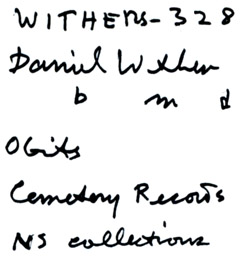 WITHERS-328
Daniel Wither
b m d
Obits
Cemetery Records
NS collections